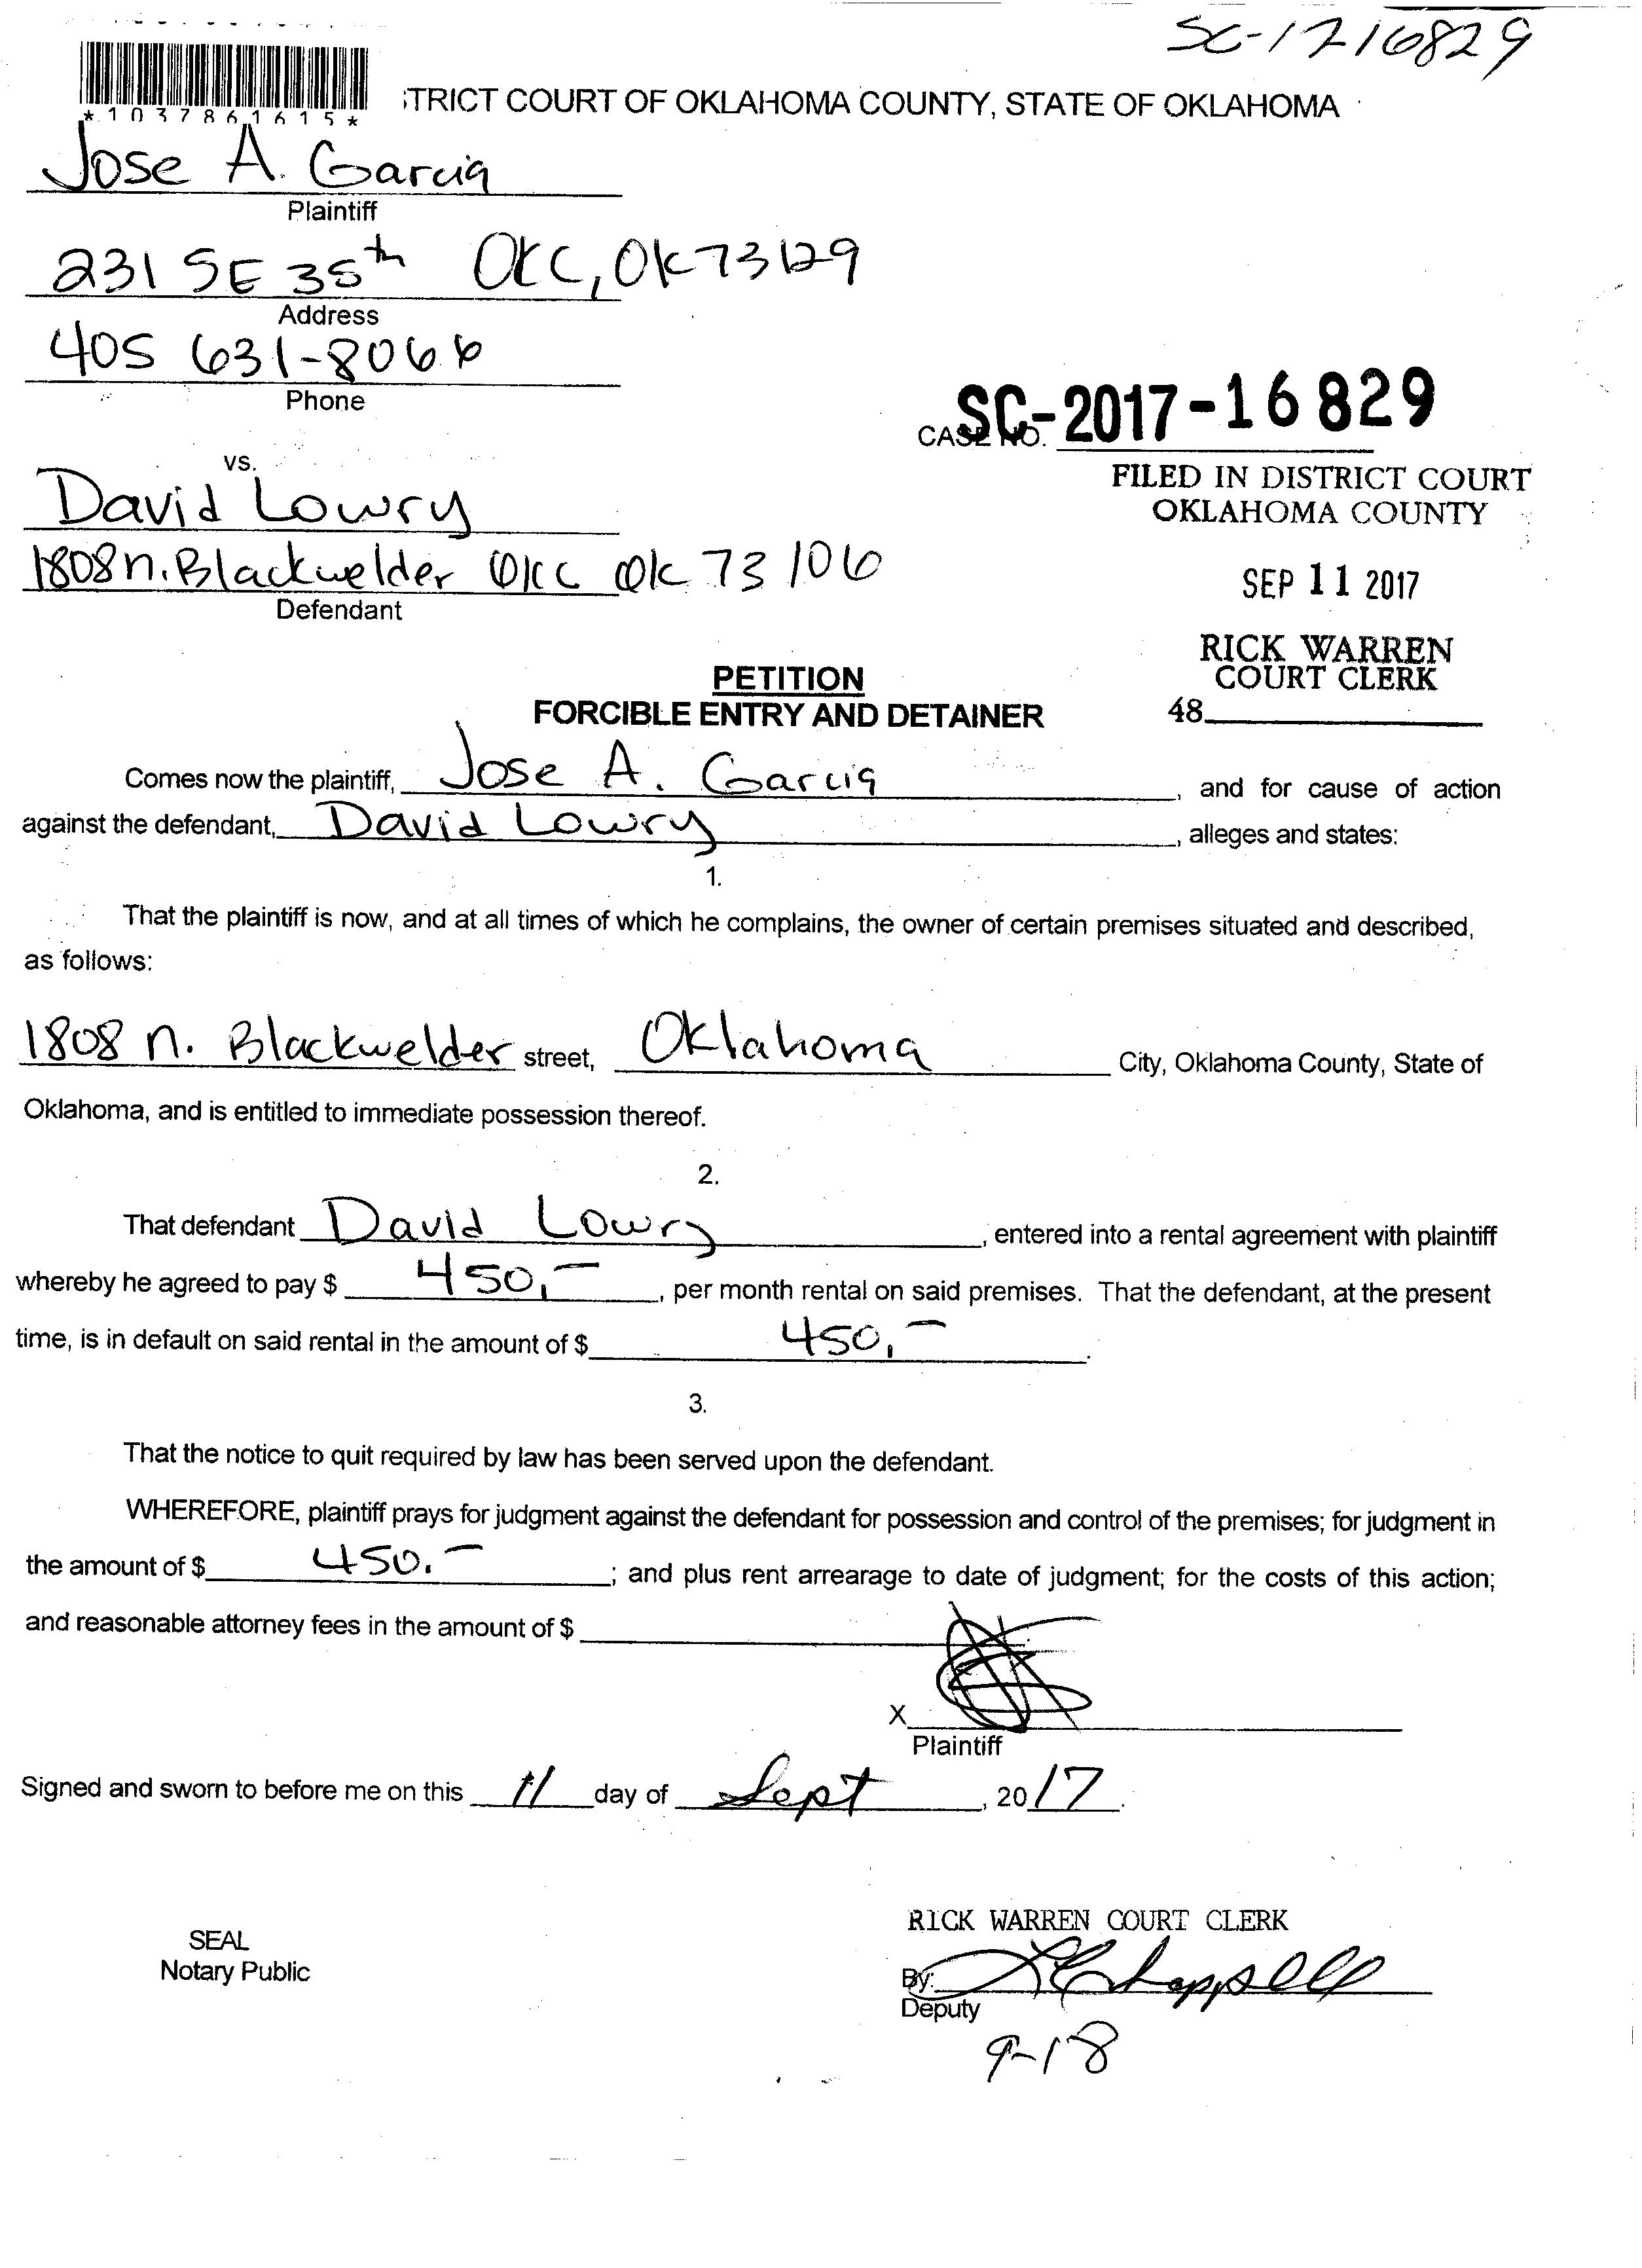 SC-1716829
*1037861615*
TRICT COURT OF OKLAHOMA COUNTY, STATE OF OKLAHOMA
Jose A. Garcia
Plaintiff
231 SE 35th OKC, OK 73129
Address
405 631-8066
Phone
SC-2017-16829
CASE NO.
vs.
FILED IN DISTRICT COURT
OKLAHOMA COUNTY
David Lowry
1808 n. Blackwelder OKC OK 73106
Defendant
SEP 11 2017
RICK WARREN
COURT CLERK
48
PETITION
FORCIBLE ENTRY AND DETAINER
Comes now the plaintiff, Jose A. Garcia, and for cause of action
against the defendant, David Lowry, alleges and states:
1.
That the plaintiff is now, and at all times of which he complains, the owner of certain premises situated and described,
as follows:
1808 n. Blackwelder street, Oklahoma City, Oklahoma County, State of
Oklahoma, and is entitled to immediate possession thereof.
2.
That defendant David Lowry, entered into a rental agreement with plaintiff
whereby he agreed to pay $ 450,-, per month rental on said premises. That the defendant, at the present
time, is in default on said rental in the amount of $ 450,-.
3.
That the notice to quit required by law has been served upon the defendant.
WHEREFORE, plaintiff prays for judgment against the defendant for possession and control of the premises; for judgment in
the amount of $ 450.-; and plus rent arrearage to date of judgment; for the costs of this action;
and reasonable attorney fees in the amount of $
X
Plaintiff
Signed and sworn to before me on this 11 day of Sept, 2017.
RICK WARREN COURT CLERK
SEAL
Notary Public
By: Chappell
Deputy
9-18